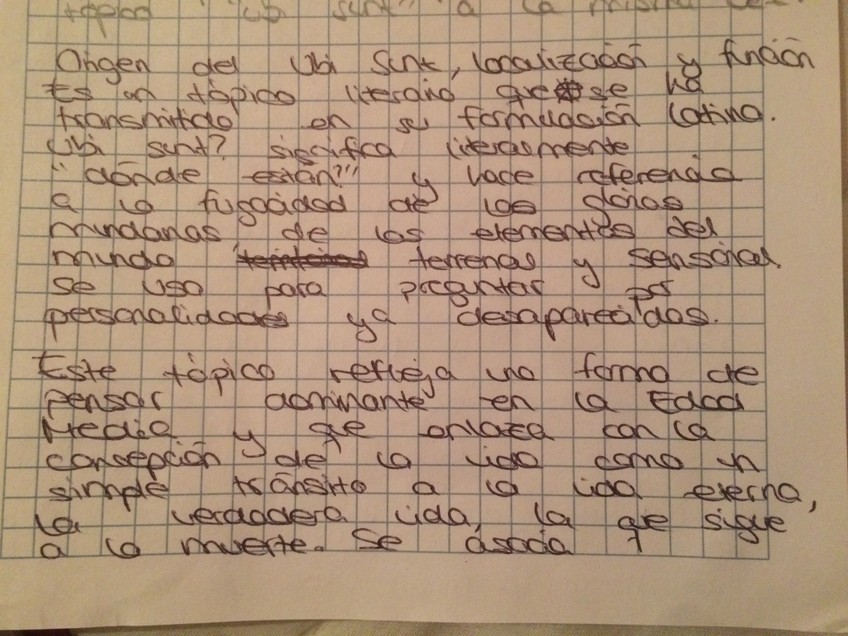 tópico "Ub sunt" a la misma
Origen del Ubi Sunt, localización y función
Es un tópico literario que se ha
transmitido en su formulación latina.
Ubi sunt? significa literalmente
"dónde están?" y hace referencia
a la fugacidad de las glorias
mundanas de los elementos del
mundo terrenas y sensorial.
Se usa para preguntar por
personalidades ya desaparecidas.
Este tópico refleja una forma de
pensar dominante en la Edad
Media y que enlaza con la
concepción de la vida como un
simple tránsito a la vida eterna,
la verdadera vida, la que sigue
a la muerte. Se asocia